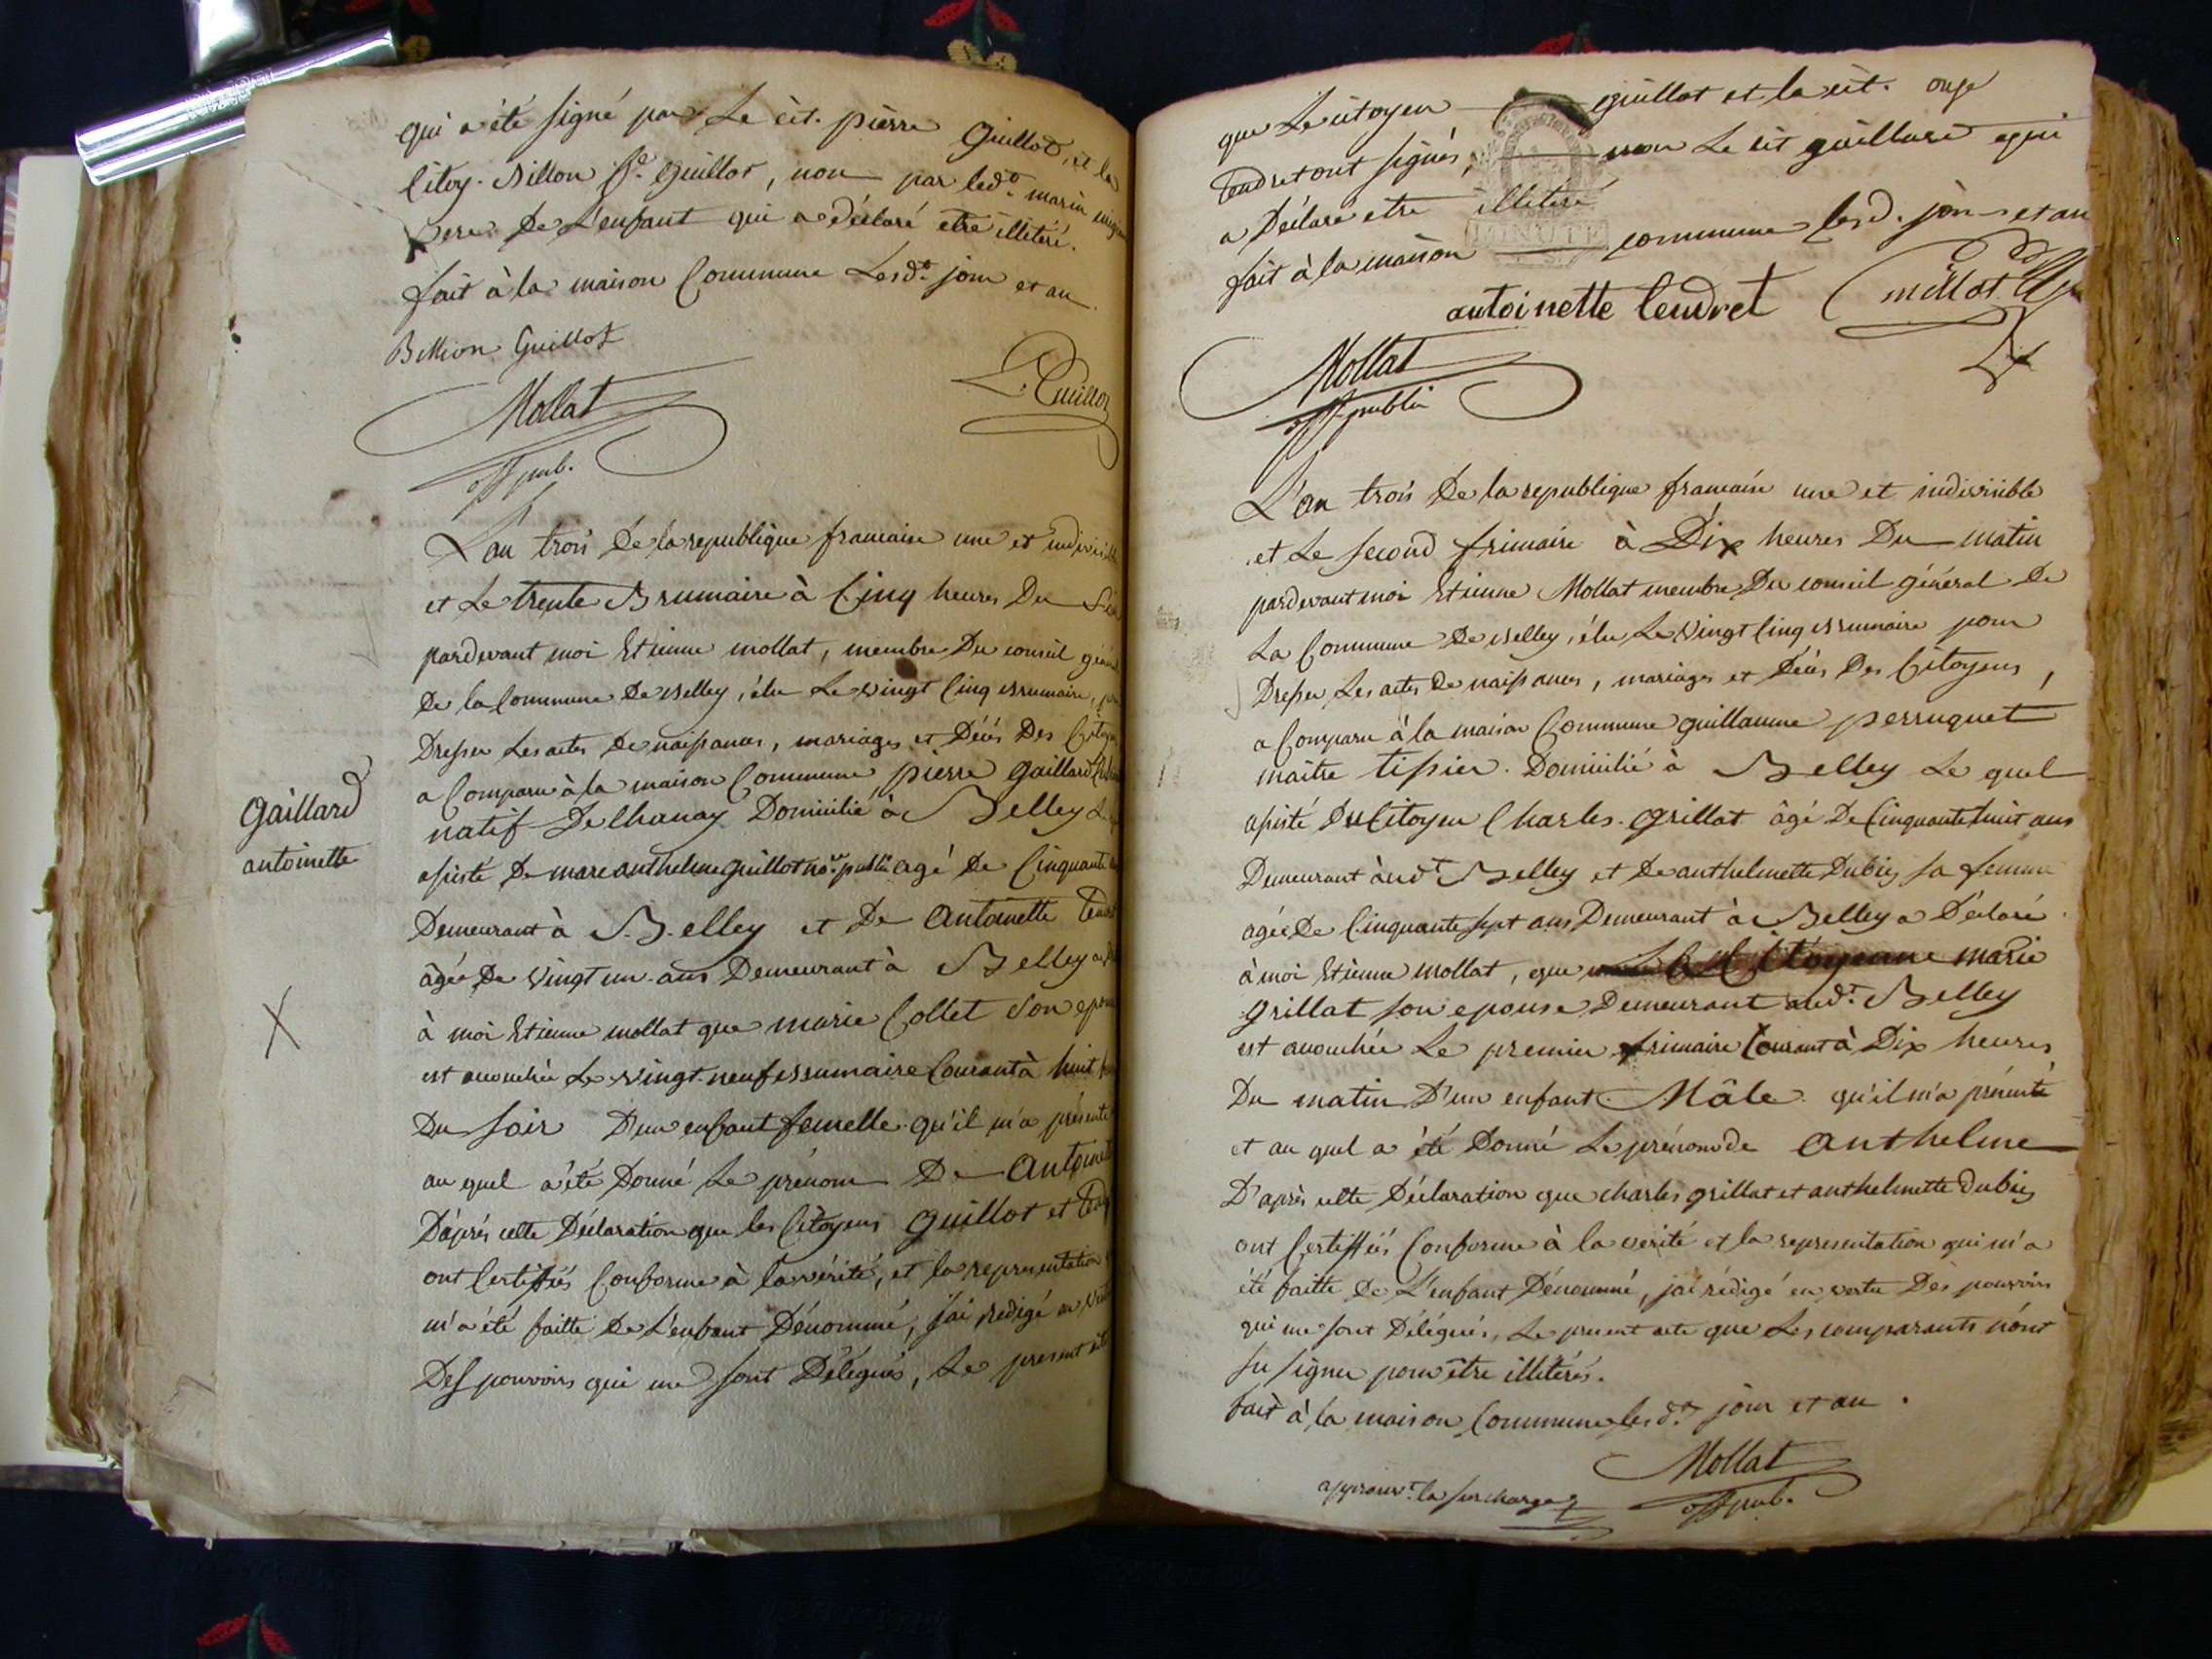 qui a été signé par Le cit. pierre Guillot, et la
Citoy. Billon fe. Guillot, non par led.t marin
pere De L'enfant qui a déclaré etre illitéré.
fait à la maison Commune Lesd.t jour et an
Billion Guillot
Mollat
off pub.
P. Guillot
L'an trois De la republique francaise une et indivisible
et Le trente Brumaire à Cinq heures Du Soir
pardevant moi Etienne mollat, membre Du conseil général
De la Commune De Belley, élu Le vingt Cinq Brumaire, pour
Dresser Les actes De naissances, mariages et Décés Des Citoyens
a Comparu à la maison Commune, pierre Gaillard
natif De Chanay Domicilié à Belley Le
assisté De marc anthelme guillot no.re public agé De Cinquante
Demeurant à Belley et De Antoinette Tendret
âgée De vingt un ans Demeurant à Belley a
à moi Etienne mollat que marie Collet Son epouse
est accouchée Le vingt neuf Brumaire Courant à huit heures
Du Soir D'un enfant femelle qu'il m'a présenté
au quel a été Donné Le prénom De Antoinette
D'aprés cette Déclaration que les Citoyens Guillot et Tendret
ont Certiffiés Conforme à la vérité, et la representation
m'a été faitte De L'enfant Dénommé, J'ai rédigé en vertu
Des pouvoirs qui me sont Délégués, Le present acte
Gaillard
antoinette
X
que Le citoyen guillot et la cit.
Tendret ont signés, non Le cit guillard qui
a Déclaré etre illiteré
fait à la maison commune lesd. jour et an
MINUTE
antoinette tendret Guillot
Mollat
off public
L'an trois De la republique francaise une et indivisible
et Le second frimaire à Dix heures Du matin
pardevant moi Etienne Mollat membre Du conseil général De
La Commune De Belley, élu Le vingt Cinq Brumaire pour
Dresser Les actes De naissances, mariages et Décés Des Citoyens,
a Comparu à la maison Commune guillaume perruquet
maitre tissier Domicilié à Belley Le quel
assisté Du Citoyen Charles Grillat âgé De Cinquante huit ans
Demeurant aud.t Belley et De anthelmette Dubiez sa femme
agée De Cinquante sept ans Demeurant à Belley a Déclaré
à moi Etienne Mollat, que La Citoyenne marie
grillat son epouse Demeurant aud.t Belley
est accouchée Le premier frimaire Courant à Dix heures
Du matin D'un enfant Mâle qu'il m'a présenté
et au quel a été Donné Le prénom de Anthelme
D'après cette Déclaration que charles grillat et anthelmette dubiez
ont Certiffiés Conforme à la verité et la representation qui m'a
été faitte De L'enfant Dénommé, j'ai rédigé en vertu Des pouvoirs
qui me sont Délégués, Le present acte que Les comparants n'ont
su signer pour être illitérés.
fait à la maison Commune lesd.t jour et an.
Mollat
off pub.
approuv.t la surcharge